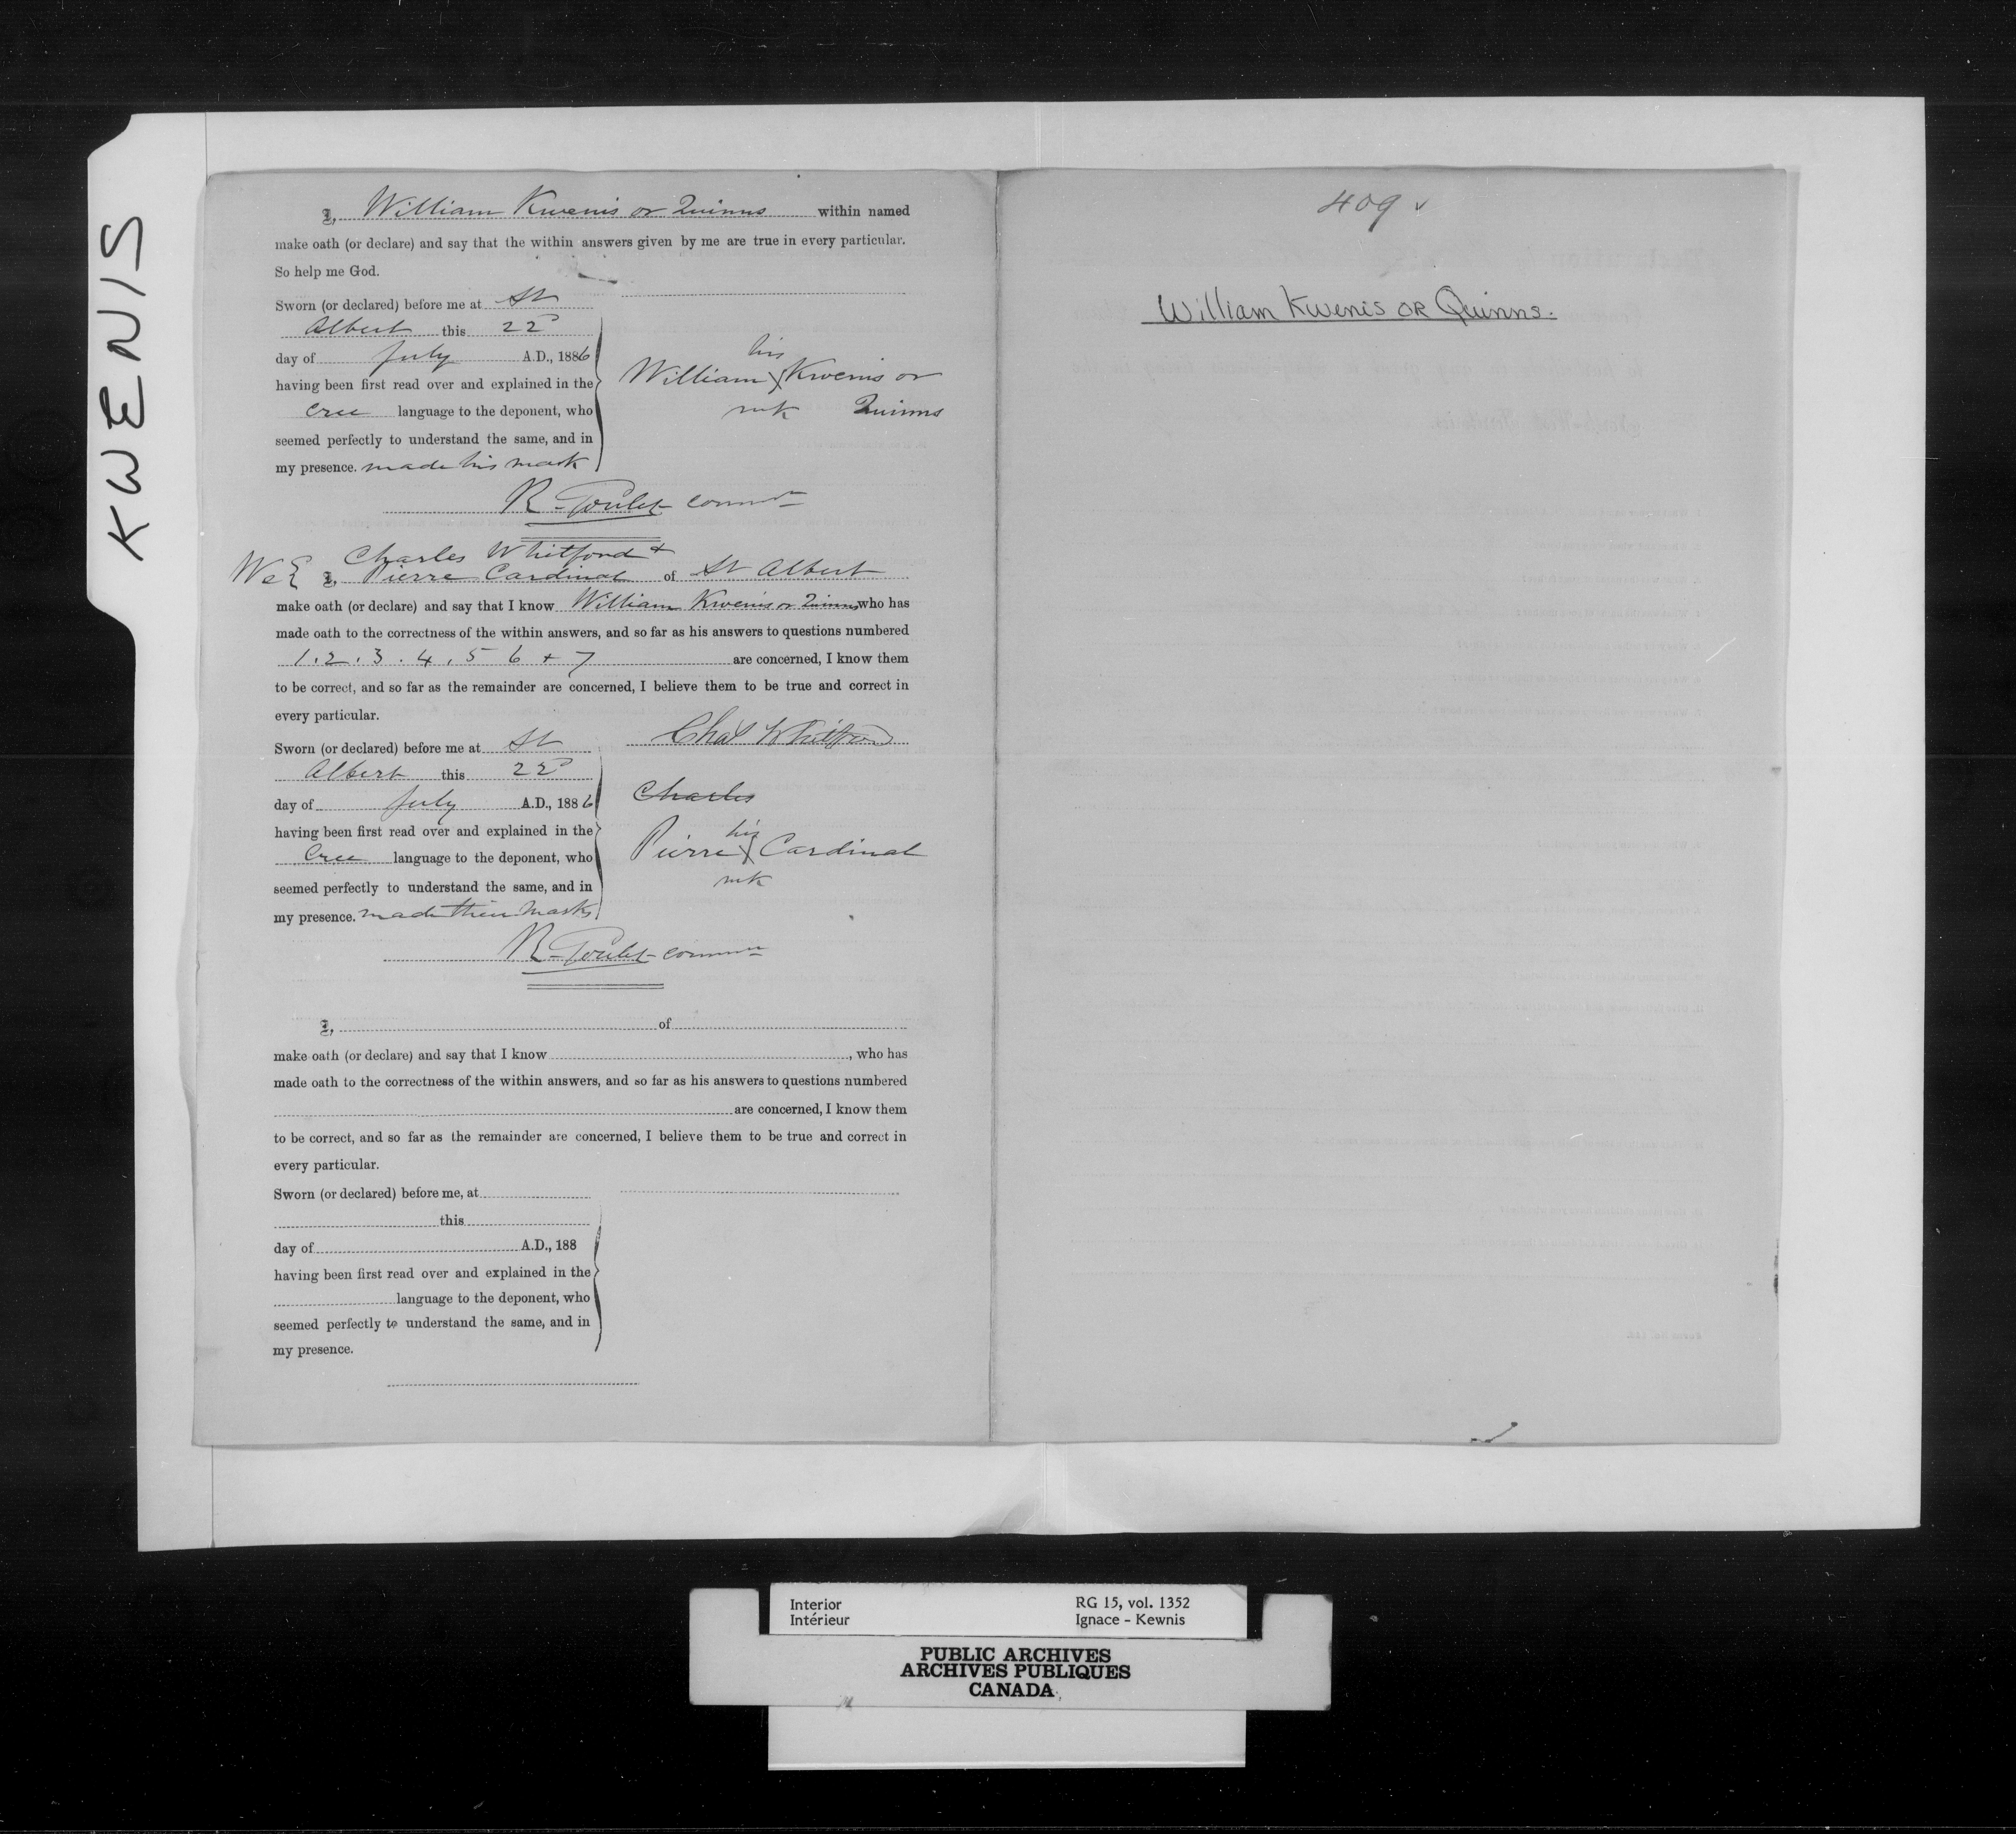 KWENIS
I, William Kwenis or Quinns within named
make oath (or declare) and say that the within answers given by me are true in every particular.
So help me God.
Sworn (or declared) before me at St
Albert this 22d
day of July A.D., 1886
having been first read over and explained in the
Cree language to the deponent, who
seemed perfectly to understand the same, and in
my presence. made his mark
his
William X Kwenis or
mk Quinns
R. Goulet
Charles Whitford +
We I, Pierre Cardinal of St Albert
make oath (or declare) and say that I know William Kwenis or Quinns who has
made oath to the correctness of the within answers, and so far as his answers to questions numbered
1. 2. 3. 4. 5 6 + 7 are concerned, I know them
to be correct, and so far as the remainder are concerned, I believe them to be true and correct in
every particular.
Sworn (or declared) before me at St
Albert this 22d
day of July A.D., 1886
having been first read over and explained in the
Cree language to the deponent, who
seemed perfectly to understand the same, and in
my presence. made their marks
Chas Whitford
Charles
his
Pierre X Cardinal
mk
R. Goulet
I, of
make oath (or declare) and say that I know , who has
made oath to the correctness of the within answers, and so far as his answers to questions numbered
are concerned, I know them
to be correct, and so far as the remainder are concerned, I believe them to be true and correct in
every particular.
Sworn (or declared) before me, at
this
day of A.D., 188
having been first read over and explained in the
language to the deponent, who
seemed perfectly to understand the same, and in
my presence.
409 v
William Kwenis OR Quinns.
Interior
Intérieur
RG 15, vol. 1352
Ignace - Kewnis
PUBLIC ARCHIVES
ARCHIVES PUBLIQUES
CANADA